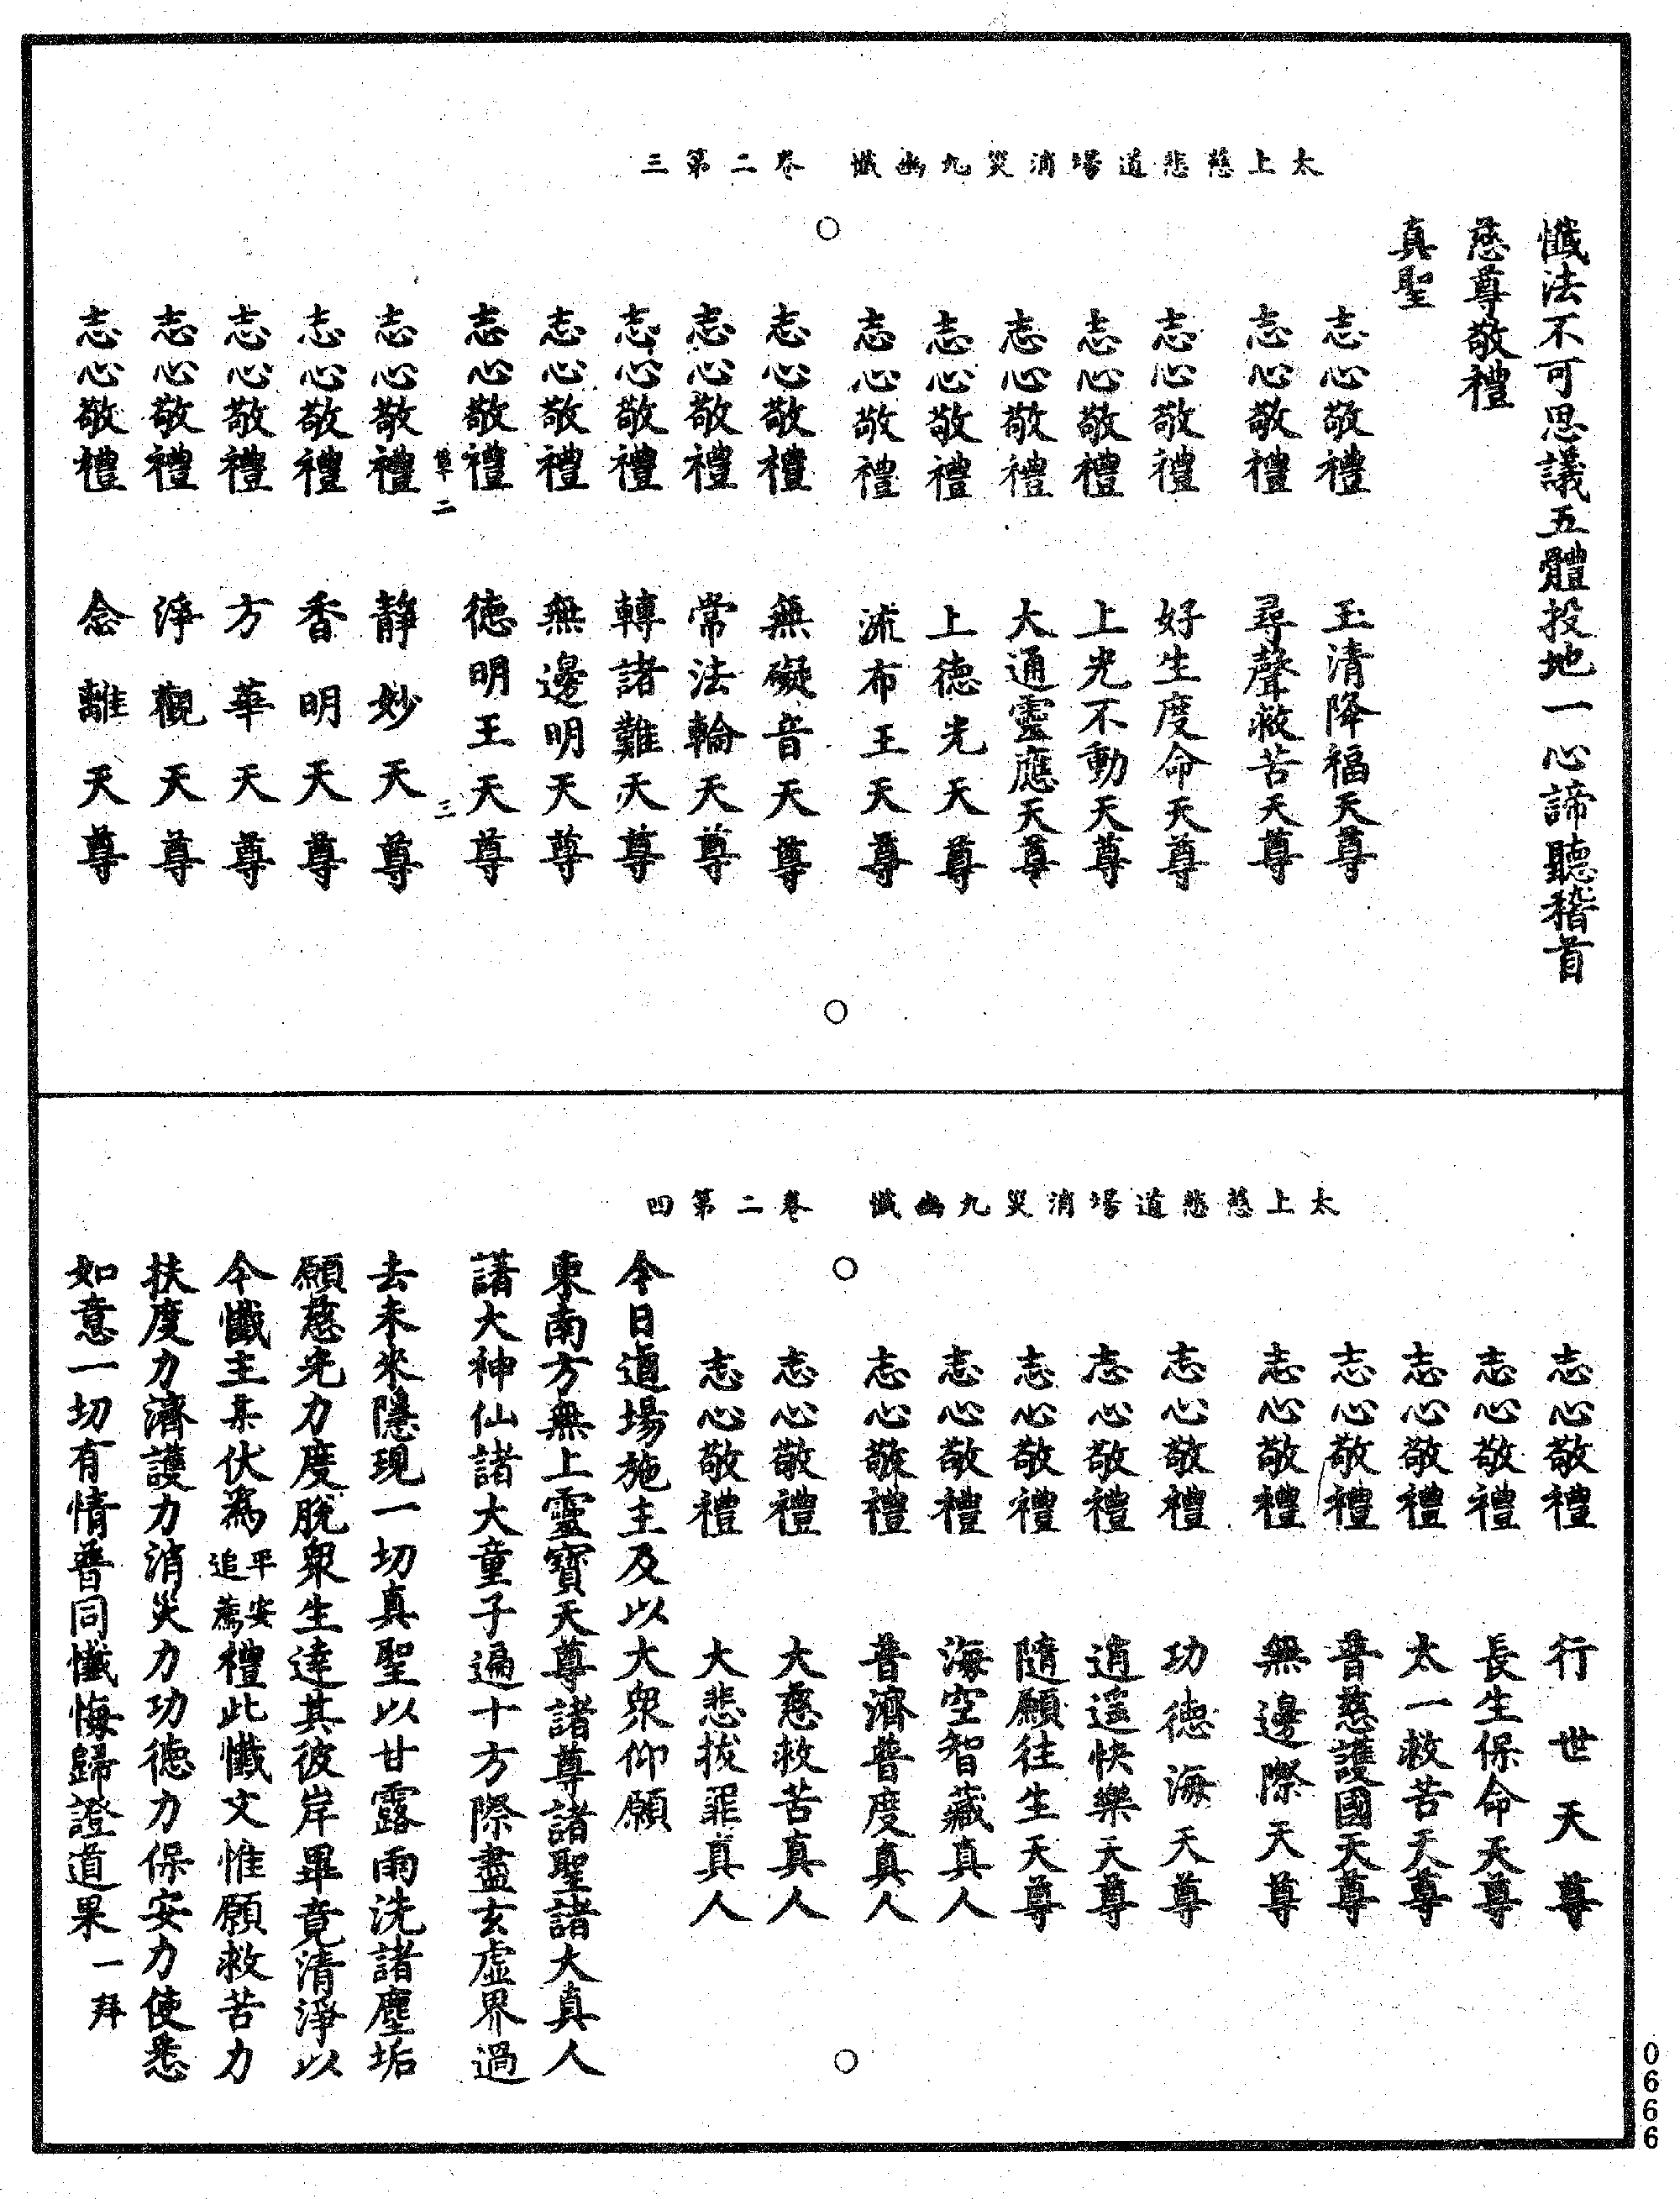 太上慈悲道場消災九幽懺　卷二第三
懺法不可思議五體投地一心諦聽稽首
慈尊敬禮
真聖
志心敬禮　玉清降福天尊
志心敬禮　尋聲救苦天尊
志心敬禮　好生度命天尊
志心敬禮　上光不動天尊
志心敬禮　大通靈應天尊
志心敬禮　上德光天尊
志心敬禮　流布王天尊
志心敬禮　無礙音天尊
志心敬禮　常法輪天尊
志心敬禮　轉諸難天尊
志心敬禮　無邊明天尊
志心敬禮　德明王天尊
二　三
志心敬禮　靜妙天尊
志心敬禮　香明天尊
志心敬禮　方華天尊
志心敬禮　淨觀天尊
志心敬禮　念離天尊
太上慈悲道場消災九幽懺　卷二第四
志心敬禮　行世天尊
志心敬禮　長生保命天尊
志心敬禮　太一救苦天尊
志心敬禮　普慈護國天尊
志心敬禮　無邊際天尊
志心敬禮　功德海天尊
志心敬禮　逍遥快樂天尊
志心敬禮　隨願往生天尊
志心敬禮　海空智藏真人
志心敬禮　普濟普度真人
志心敬禮　大慈救苦真人
志心敬禮　大悲拔罪真人
今日道場施主及以大衆仰願
東南方無上靈寶天尊諸尊諸聖諸大真人
諸大神仙諸大童子遍十方際盡玄虛界過
去未來隱現一切真聖以甘露雨洗諸塵垢
願慈光力度脫衆生達其彼岸畢竟清淨以
今懺主某伏為平安追薦禮此懺文惟願救苦力
扶度力濟護力消災力功德力保安力使悉
如意一切有情普同懺悔歸證道果一拜
0666